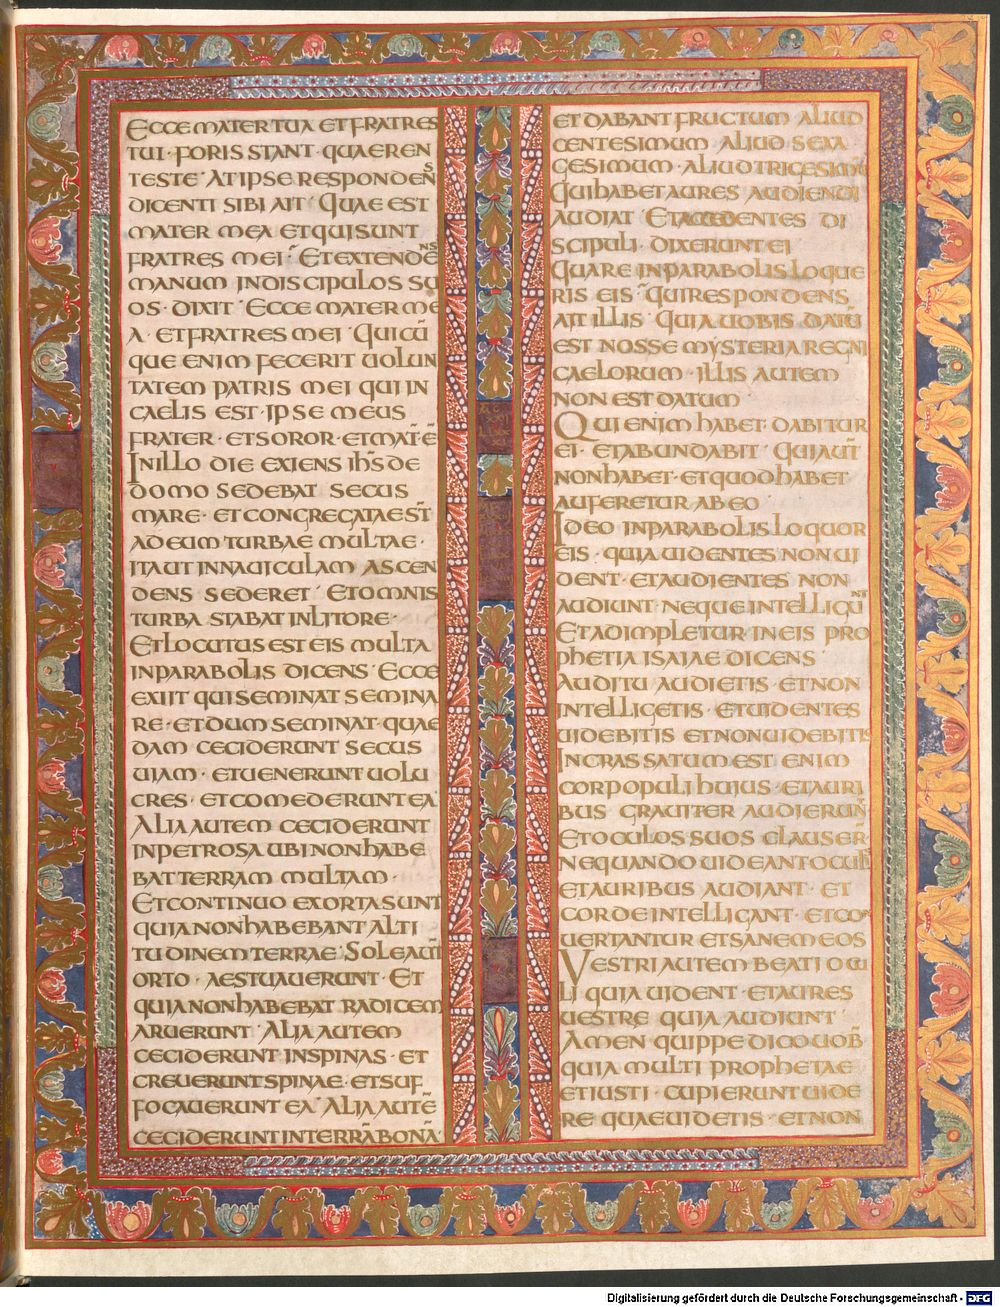 ECCE MATER TUA ET FRATRES
TUI · FORIS STANT · QUAEREN
TESTE · AT IPSE RESPONDEN̄S
DICENTI SIBI AIT · QUAE EST
MATER MEA ET QUI SUNT
FRATRES MEI · ET EXTENDENS
MANUM IN DISCIPULOS SU
OS · DIXIT · ECCE MATER ME
A · ET FRATRES MEI · QUICŪ
QUE ENIM FECERIT UOLUN
TATEM PATRIS MEI QUI IN
CAELIS EST · IPSE MEUS
FRATER · ET SOROR · ET MAT̄ Ē
IN ILLO DIE EXIENS IH̄S DE
DOMO SEDEBAT SECUS
MARE · ET CONGREGATAE S̄T
AD EUM TURBAE MULTAE ·
ITA UT IN NAUICULAM ASCEN
DENS SEDERET · ET OMNIS
TURBA STABAT IN LITORE ·
ET LOCUTUS EST EIS MULTA
IN PARABOLIS DICENS · ECCE
EXIIT QUI SEMINAT SEMINA
RE · ET DUM SEMINAT · QUAE
DAM CECIDERUNT SECUS
UIAM · ET UENERUNT UOLU
CRES · ET COMEDERUNT EA ·
ALIA AUTEM CECIDERUNT
IN PETROSA UBI NON HABE
BAT TERRAM MULTAM ·
ET CONTINUO EXORTA SUNT
QUIA NON HABEBANT ALTI
TUDINEM TERRAE · SOLE AUT̄
ORTO · AESTUAUERUNT · ET
QUIA NON HABEBAT RADICEM
ARUERUNT · ALIA AUTEM
CECIDERUNT IN SPINAS · ET
CREUERUNT SPINAE · ET SUF
FOCAUERUNT EA · ALIA AUTĒ
CECIDERUNT IN TERRĀ BONĀ
ET DABANT FRUCTUM ALIUD
CENTESIMUM ALIUD SEXA
GESIMUM · ALIUD TRIGESIMŪ
QUI HABET AURES AUDIENDI
AUDIAT · ET ACCEDENTES DI
SCIPULI · DIXERUNT EI ·
QUARE IN PARABOLIS LOQUE
RIS EIS · QUI RESPONDENS
AIT ILLIS · QUIA UOBIS DATŪ
EST NOSSE MYSTERIA REGNI
CAELORUM · ILLIS AUTEM
NON EST DATUM ·
QUI ENIM HABET · DABITUR
EI · ET ABUNDABIT · QUI AUT̄
NON HABET · ET QUOD HABET
AUFERETUR AB EO
IDEO IN PARABOLIS LOQUOR
EIS · QUIA UIDENTES NON UI
DENT · ET AUDIENTES NON
AUDIUNT · NEQUE INTELLIGUNT
ET ADIMPLETUR IN EIS PRO
PHETIA ISAIAE DICENS ·
AUDITU AUDIETIS · ET NON
INTELLIGETIS · ET UIDENTES
UIDEBITIS ET NON UIDEBITIS
INCRASSATUM EST ENIM
COR POPULI HUIUS · ET AURI
BUS GRAUITER AUDIERUN̄
ET OCULOS SUOS CLAUSER̄
NE QUANDO UIDEANT OCULIS
ET AURIBUS AUDIANT · ET
CORDE INTELLIGANT · ET CON
UERTANTUR ET SANEM EOS
VESTRI AUTEM BEATI OCU
LI QUIA UIDENT · ET AURES
UESTRE QUIA AUDIUNT ·
AMEN QUIPPE DICO UOB̄
QUIA MULTI PROPHETAE
ET IUSTI · CUPIERUNT UIDE
RE QUAE UIDETIS · ET NON
Digitalisierung gefördert durch die Deutsche Forschungsgemeinschaft - DFG